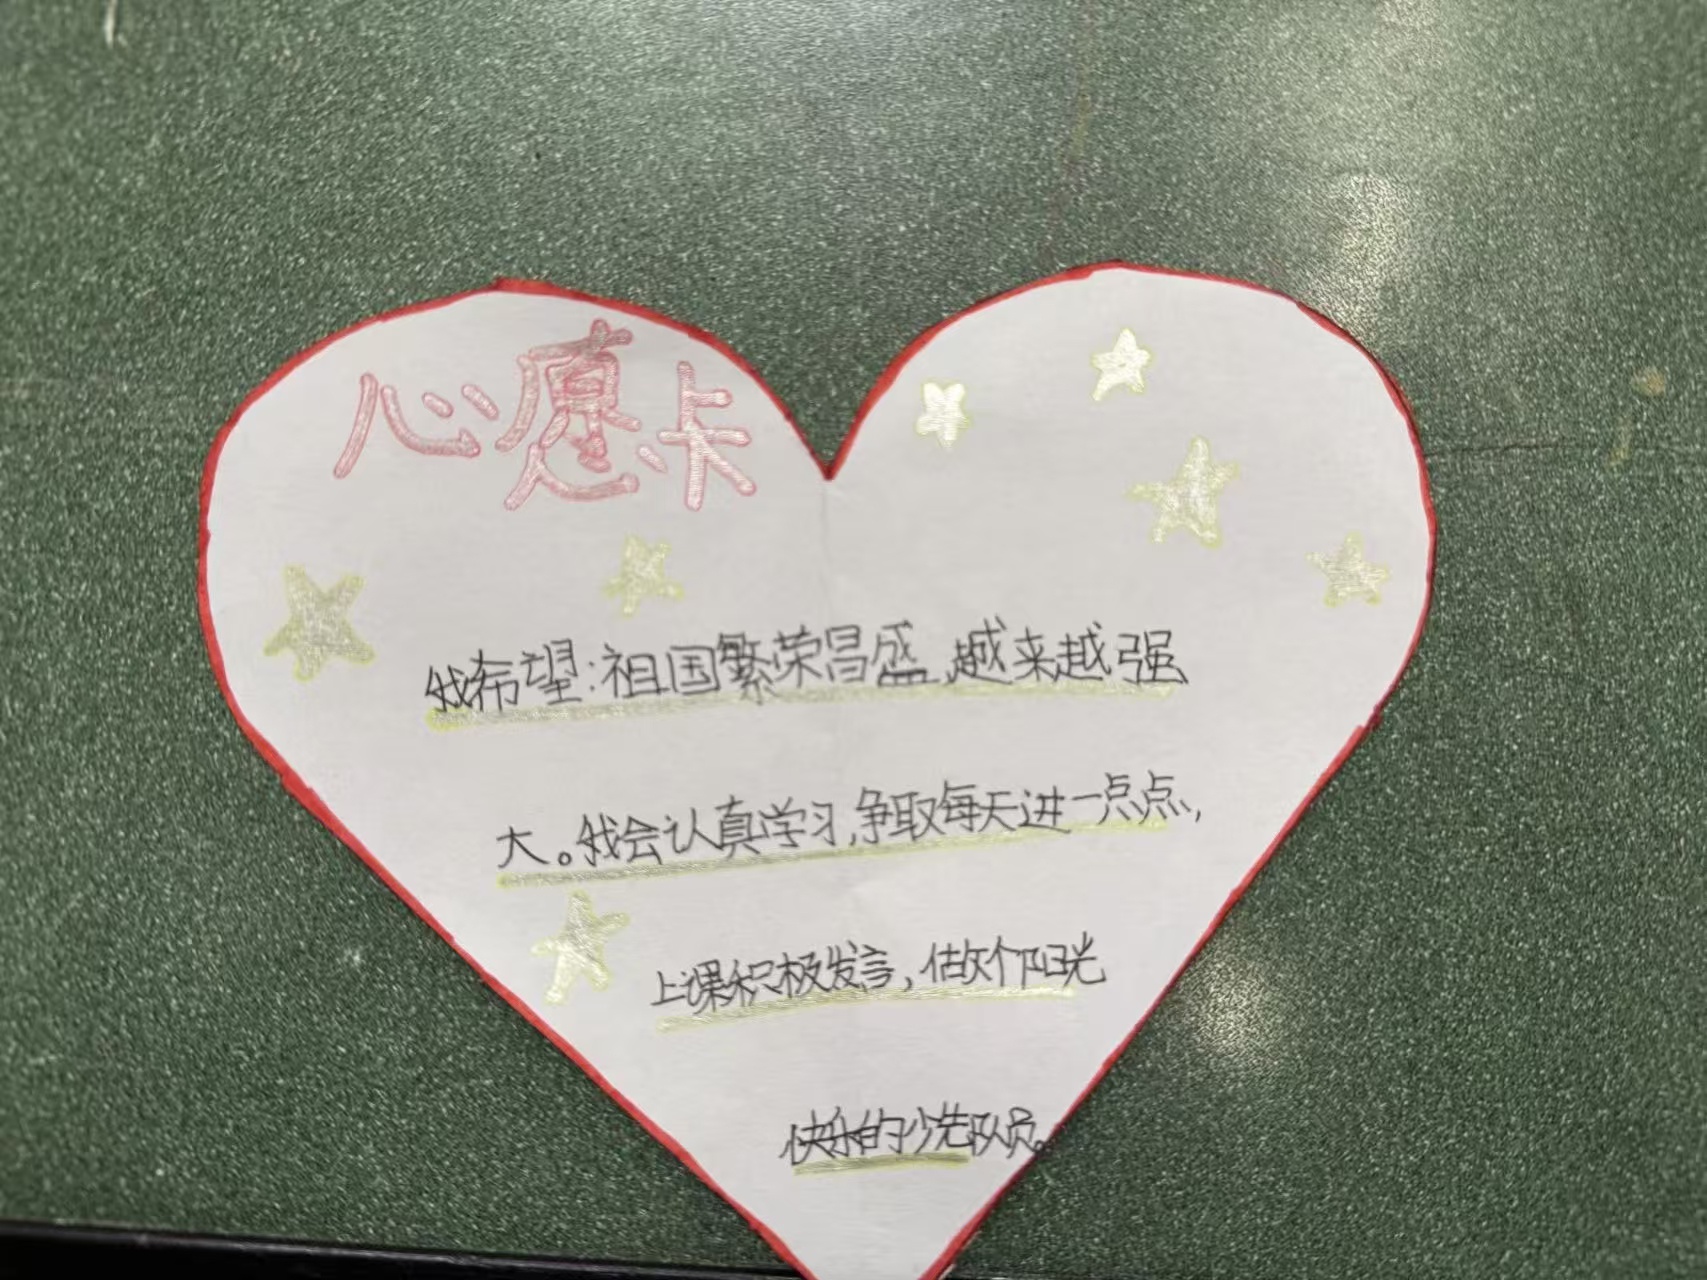 心愿卡
我希望:祖国繁荣昌盛,越来越强
大。我会认真学习,争取每天进一点点,
上课积极发言,做个阳光
快乐的少先队员。